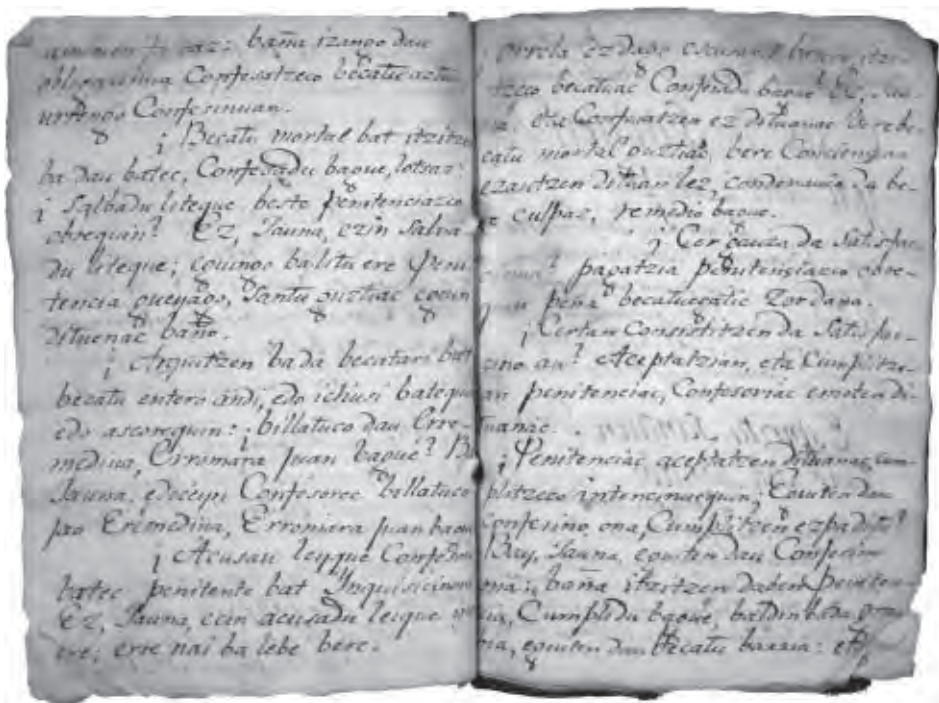 baña izango dau
obligacinua Confesatzeco becatu
urrengo Confesinuan.
¡ Becatu mortal bat itzite
ba dau batec, Confesadu bague, lotsaz:
¡ Salbadu liteque beste penitenciazco
obrequin? Ez, Jauna, ezin salva
du liteque; eguingo balitu ere Peni
tencia gueyago, Santu guztiac eguin
dituenac baño.
¡ Arquitzen bada becatari bat
becatu entero andi, edo ichusi batequin
edo ascorequin: ¡ billatuco dau Erre-
medina, Erromara juan bague? Bay
Jauna, edocein Confesorec billatuco
jao Erremedina, Erromara juan bague
¡ Acusau leique Confesore
batec penitente bat Inquisicinoan
Ez, Jauna, ecin acusadu leique
ere; erre nai ba lebe bere.
¡ orrela ez dago escusarik itzi-
tzeco becatuac Confesadu bague? Ez, Jau-
na, eta Confesatzen ez dituanac bere be-
catu mortal guztiac, bere Concienzian
ezautzen dituan lez, condenauco da be-
re culpaz, remedio bague.
¡ Cer gauza da Satisfac-
cinua? pagatzia penitenciazco obre-
quin pena becatuecatic zordana.
¡ Certan Consistitzen da Satisfac-
cino au? Aceptatzian, eta Cumplitze-
an penitenciac, Confesoriac emoten di-
tuanac.
¡ Penitenciac aceptatzen dituanac, cum-
plitzeco intencinuequin; Eguiten dau
Confesino ona, Cumplitzen ezpaditu?
Bay, Jauna, eguiten dau Confesino
ona; baña itzitzen daben peniten-
cia, Cumplidu bague, baldin bada
eguiten dau becatu barria: